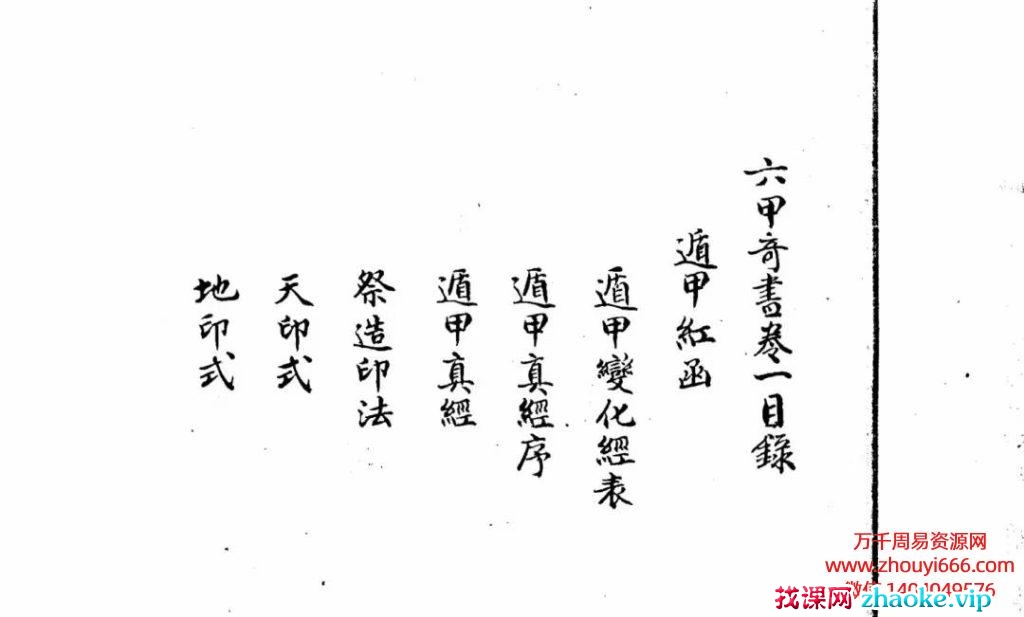 六甲奇書卷一目錄
遁甲紅函
遁甲變化經表
遁甲真經序
遁甲真經
祭造印法
天印式
地印式
万千周易资源网
www.zhouyi666.com
找课网 zhaoke.vip